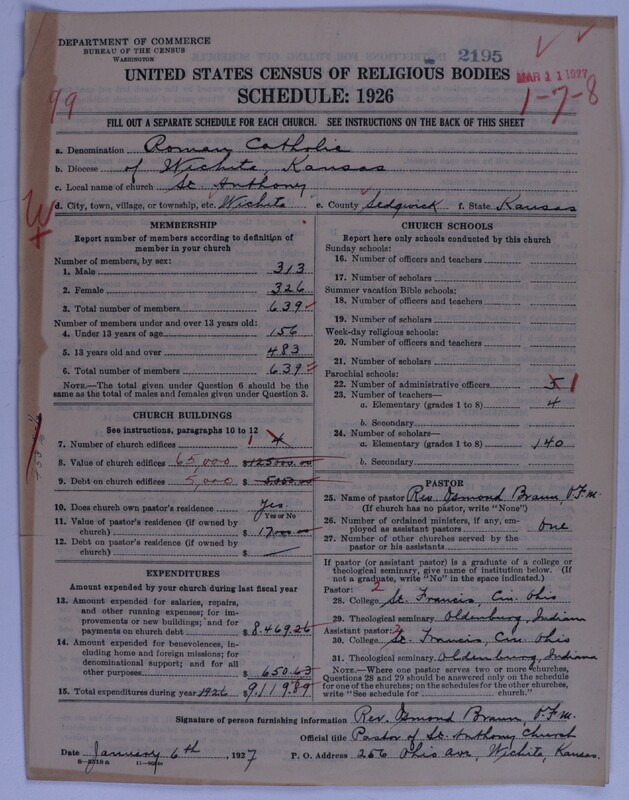 DEPARTMENT OF COMMERCE
BUREAU OF THE CENSUS
WASHINGTON
2195
MAR 11 1927
UNITED STATES CENSUS OF RELIGIOUS BODIES
SCHEDULE: 1926
1-7-8
99
FILL OUT A SEPARATE SCHEDULE FOR EACH CHURCH. SEE INSTRUCTIONS ON THE BACK OF THIS SHEET
a. Denomination Roman Catholic
b. Diocese of Wichita, Kansas
c. Local name of church St. Anthony
d. City, town, village, or township, etc. Wichita e. County Sedgwick f. State Kansas
MEMBERSHIP
Report number of members according to definition of
member in your church
Number of members, by sex:
1. Male 313
2. Female 326
3. Total number of members 639
Number of members under and over 13 years old:
4. Under 13 years of age 156
5. 13 years old and over 483
6. Total number of members 639
NOTE.—The total given under Question 6 should be
the same as the total of males and females given under Question 3.
CHURCH BUILDINGS
See instructions, paragraphs 10 to 12
7. Number of church edifices 1 4
8. Value of church edifices 65,000 $125000.00
9. Debt on church edifices 5,000 $5,000.00
10. Does church own pastor's residence Yes.
Yes or No
11. Value of pastor's residence (if owned by
church) $
12. Debt on pastor's residence (if owned by
church) $ —
EXPENDITURES
Amount expended by your church during last fiscal year
13. Amount expended for salaries, repairs,
and other running expenses; for im-
provements or new buildings; and for
payments on church debt $ 8.469.26
14. Amount expended for benevolences, in-
cluding home and foreign missions; for
denominational support; and for all
other purposes $ 650.63
15. Total expenditures during year 1926 $ 9119.89
CHURCH SCHOOLS
Report here only schools conducted by this church
Sunday schools:
16. Number of officers and teachers
17. Number of scholars
Summer vacation Bible schools:
18. Number of officers and teachers
19. Number of scholars
Week-day religious schools:
20. Number of officers and teachers
21. Number of scholars
Parochial schools:
22. Number of administrative officers 1
23. Number of teachers—
a. Elementary (grades 1 to 8) 4
b. Secondary
24. Number of scholars—
a. Elementary (grades 1 to 8) 140
b. Secondary
PASTOR
25. Name of pastor Rev. Osmond Braun, O.F.M.
(If church has no pastor, write "None")
26. Number of ordained ministers, if any, em-
ployed as assistant pastors one
27. Number of other churches served by the
pastor or his assistants
If pastor (or assistant pastor) is a graduate of a college or
theological seminary, give name of institution below. (If
not a graduate, write "No" in the space indicated.)
Pastor: 2
28. College St. Francis, Cin. Ohio
29. Theological seminary Oldenburg, Indiana
Assistant pastor: 2
30. College St. Francis, Cin. Ohio
31. Theological seminary Oldenburg, Indiana
NOTE.—Where one pastor serves two or more churches,
Questions 28 and 29 should be answered only on the schedule
for one of the churches; on the schedules for the other churches,
write "See schedule for church."
Signature of person furnishing information Rev. Osmond Braun, O.F.M.
Official title Pastor of St. Anthony Church
Date January 6th, 1927 P. O. Address 256 Ohio Ave, Wichita, Kansas.